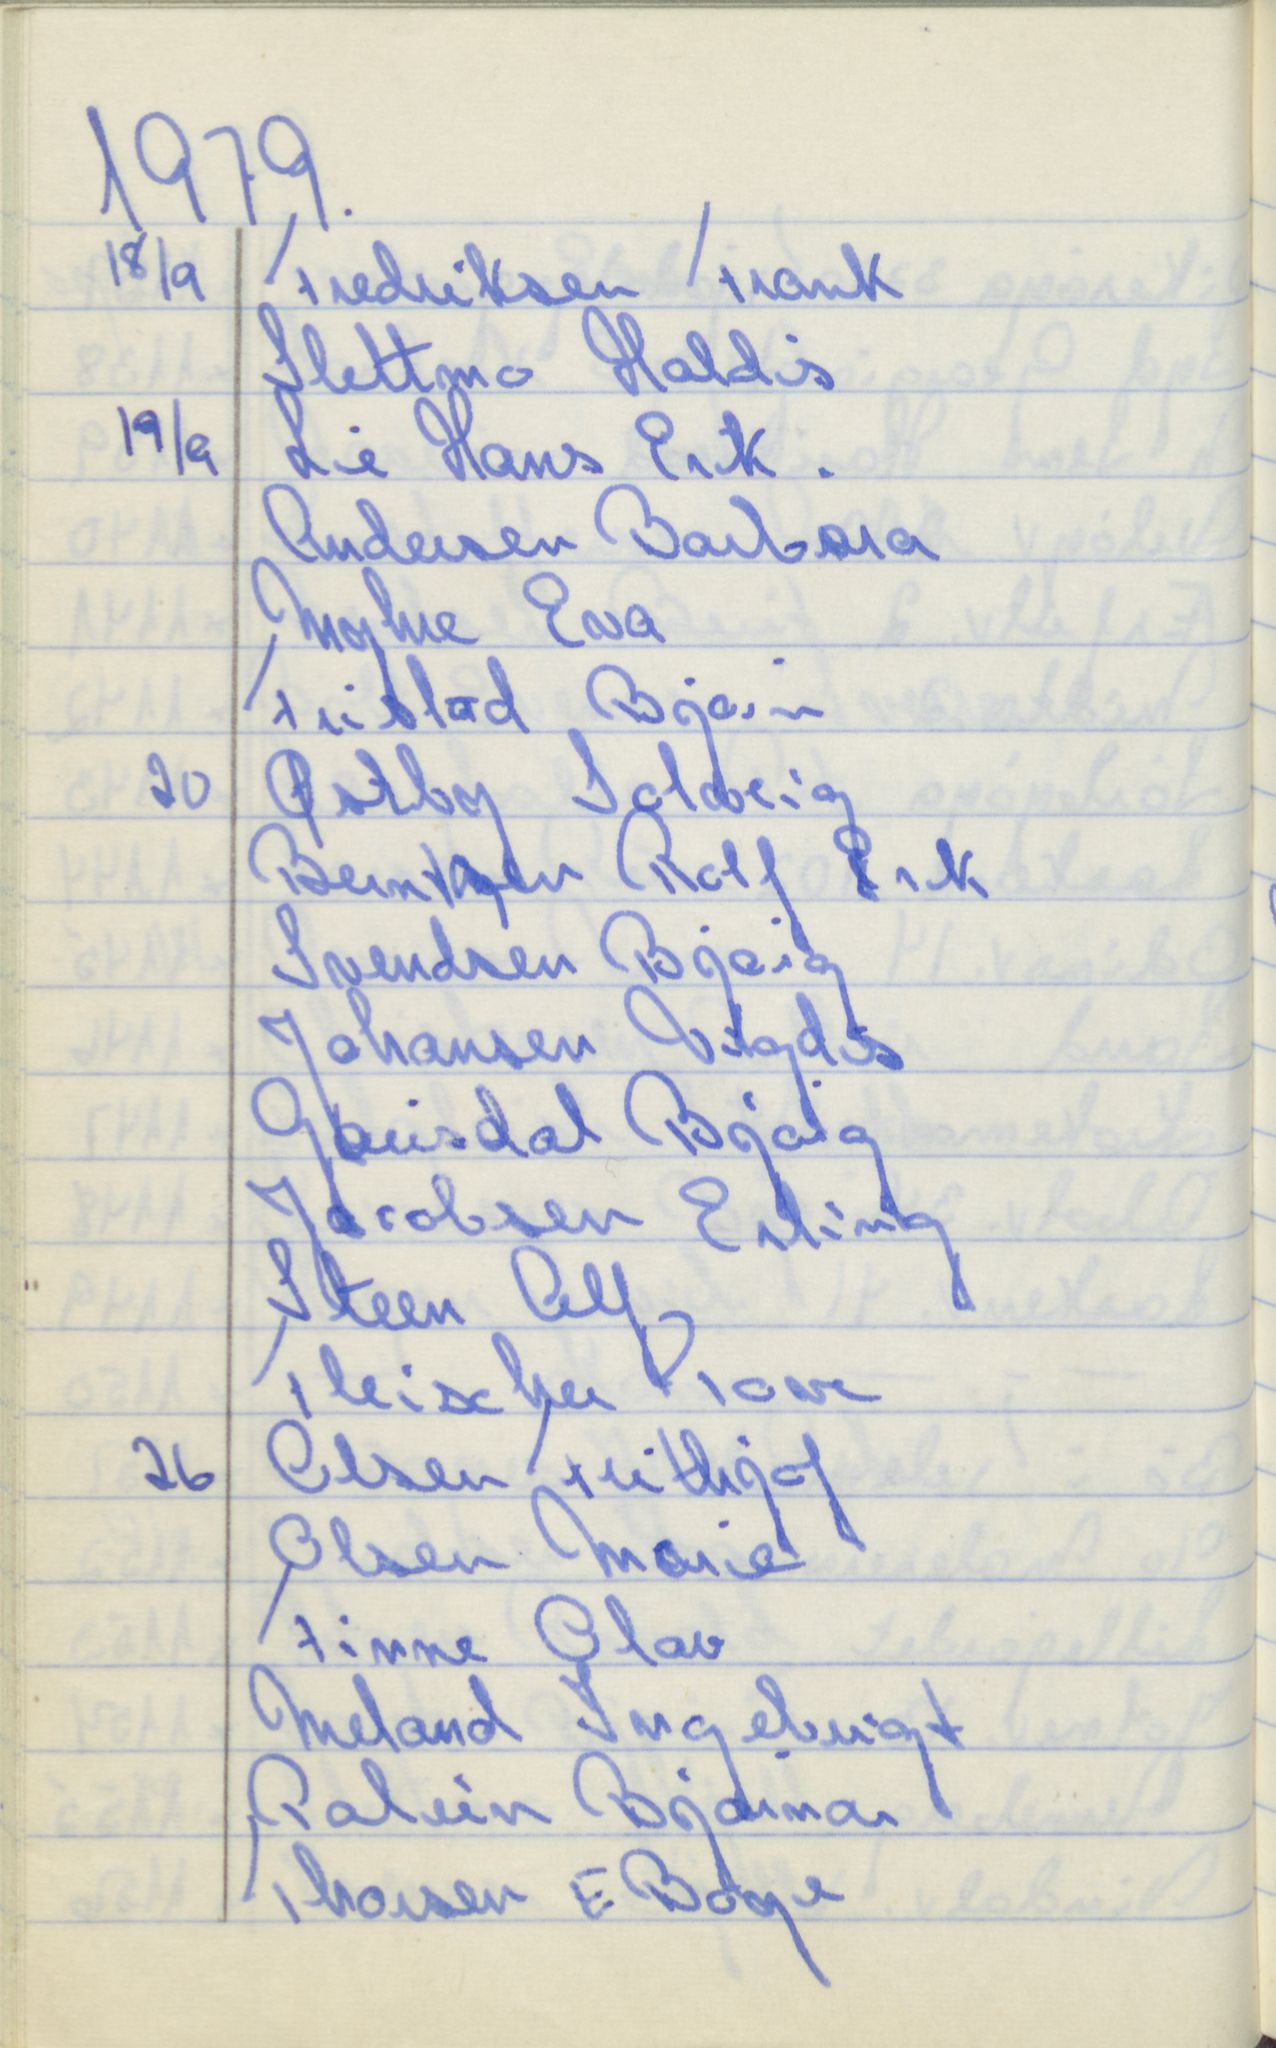 1979.
18/9 Fredriksen Frank
Slettmo Haldis
19/9 Lie Hans Erik.
Andersen Barbara
Myhre Eva
Fristad Bjørn
20 Østby Solveig
Berntsen Rolf Erik
Svendsen Bjørg
Johansen Vigdis
Gausdal Bjørg
Jacobsen Erling
Steen Alf
Fleischer Tove
26 Olsen Frithjof
Olsen Marie
Finne Olav
Meland Ingebrigt
Bjarnar
Thorsen E Børge